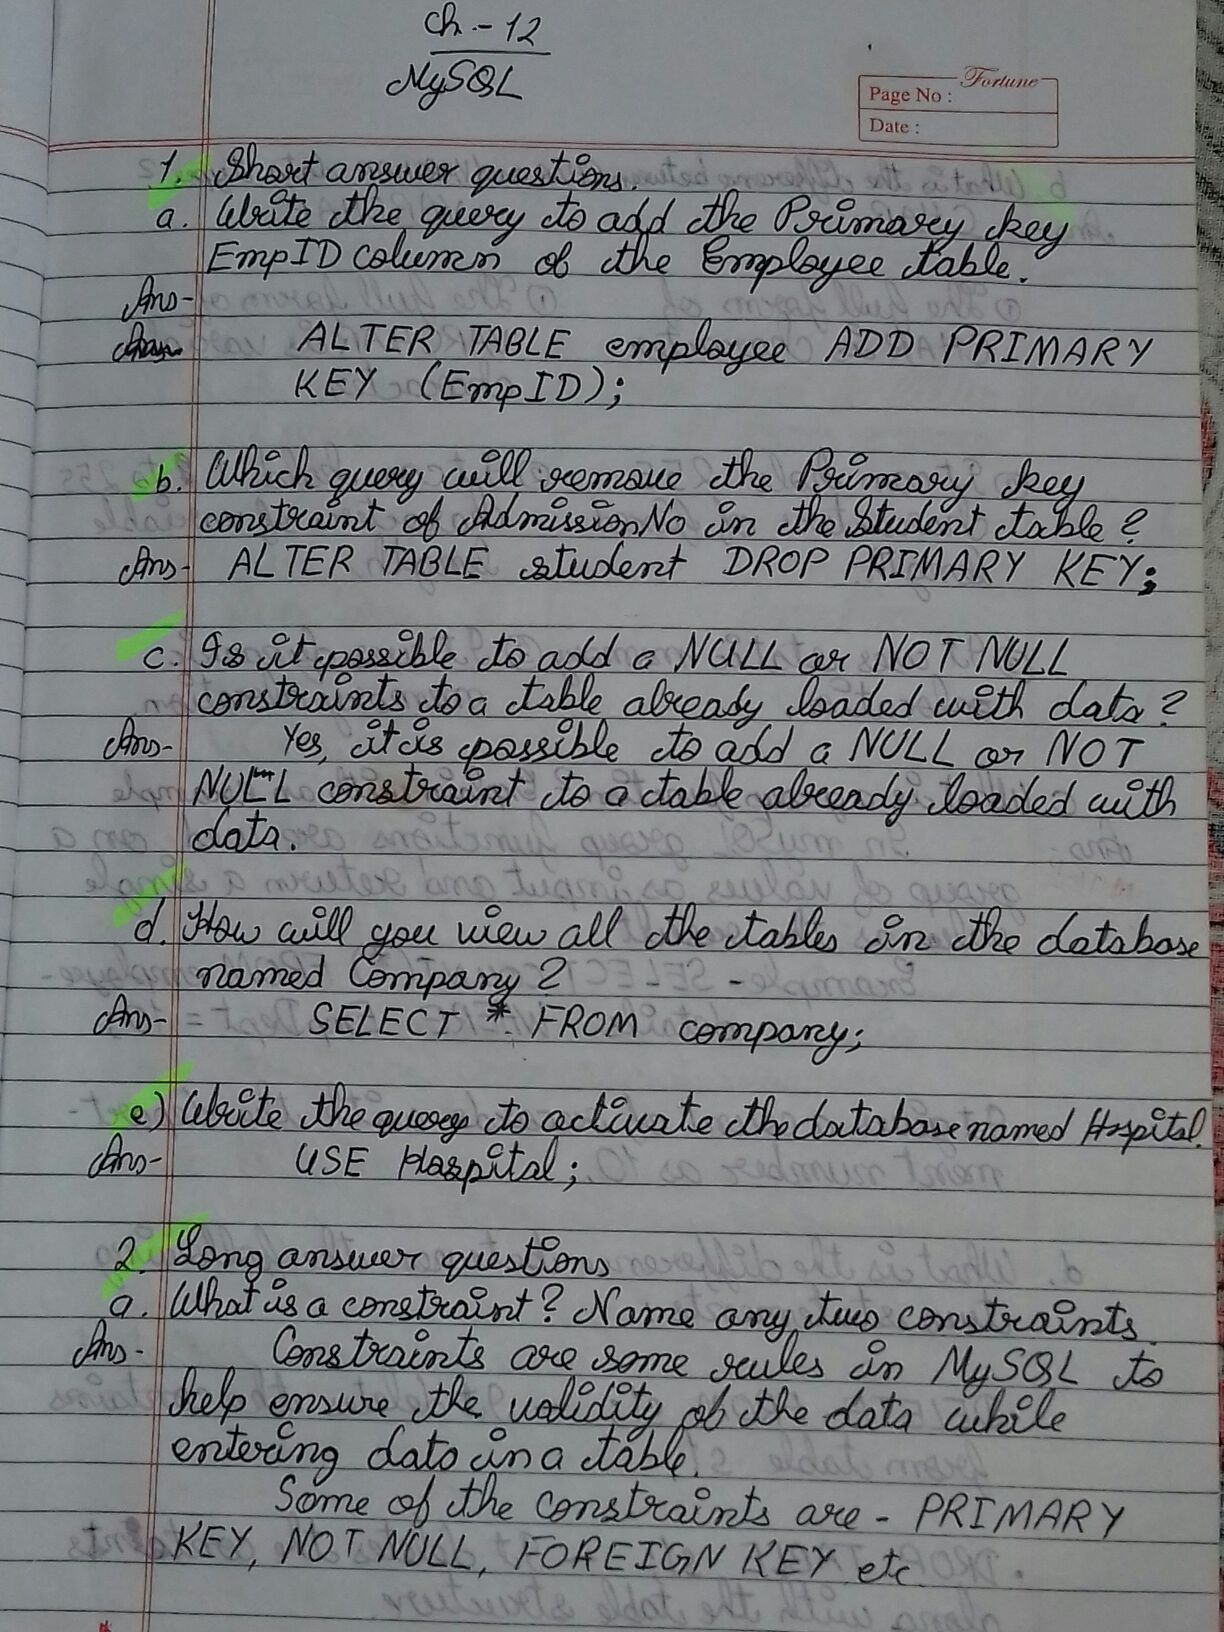 Ch - 12
MySQL
Fortune
Page No :
Date :
1. Short answer questions.
a. Write the query to add the Primary key
EmpID column of the Employee table.
Ans-
ALTER TABLE employee ADD PRIMARY
KEY (EmpID);
b. Which query will remove the Primary key
constraint of AdmissionNo in the Student table?
Ans- ALTER TABLE student DROP PRIMARY KEY;
c. Is it possible to add a NULL or NOT NULL
constraints to a table already loaded with data?
Ans- Yes, it is possible to add a NULL or NOT
NULL constraint to a table already loaded with
data.
d. How will you view all the tables in the database
named Company?
Ans- SELECT * FROM company;
e) Write the query to activate the database named Hospital.
Ans- USE Hospital;
2. Long answer questions
a. What is a constraint? Name any two constraints.
Ans- Constraints are some rules in MySQL to
help ensure the validity of the data while
entering data in a table.
Some of the constraints are - PRIMARY
KEY, NOT NULL, FOREIGN KEY etc.